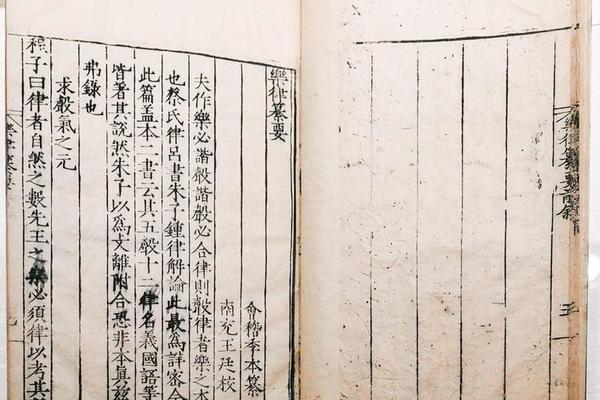 樂律纂要
五
樂律纂要
會稽季本纂
南充王廷校
夫作樂必諧殸諧殸必合律則殸律者樂之本
也蔡氏律呂書朱子鍾律解論此最為詳密今
此篇蓋本二書云其五殸十二律名義國語等
皆著其說然朱子以爲文離附合恐非本眞茲
弗錄也
求殸氣之元
程子曰律者自然之數先王之樂必須律以考其
樂律纂要